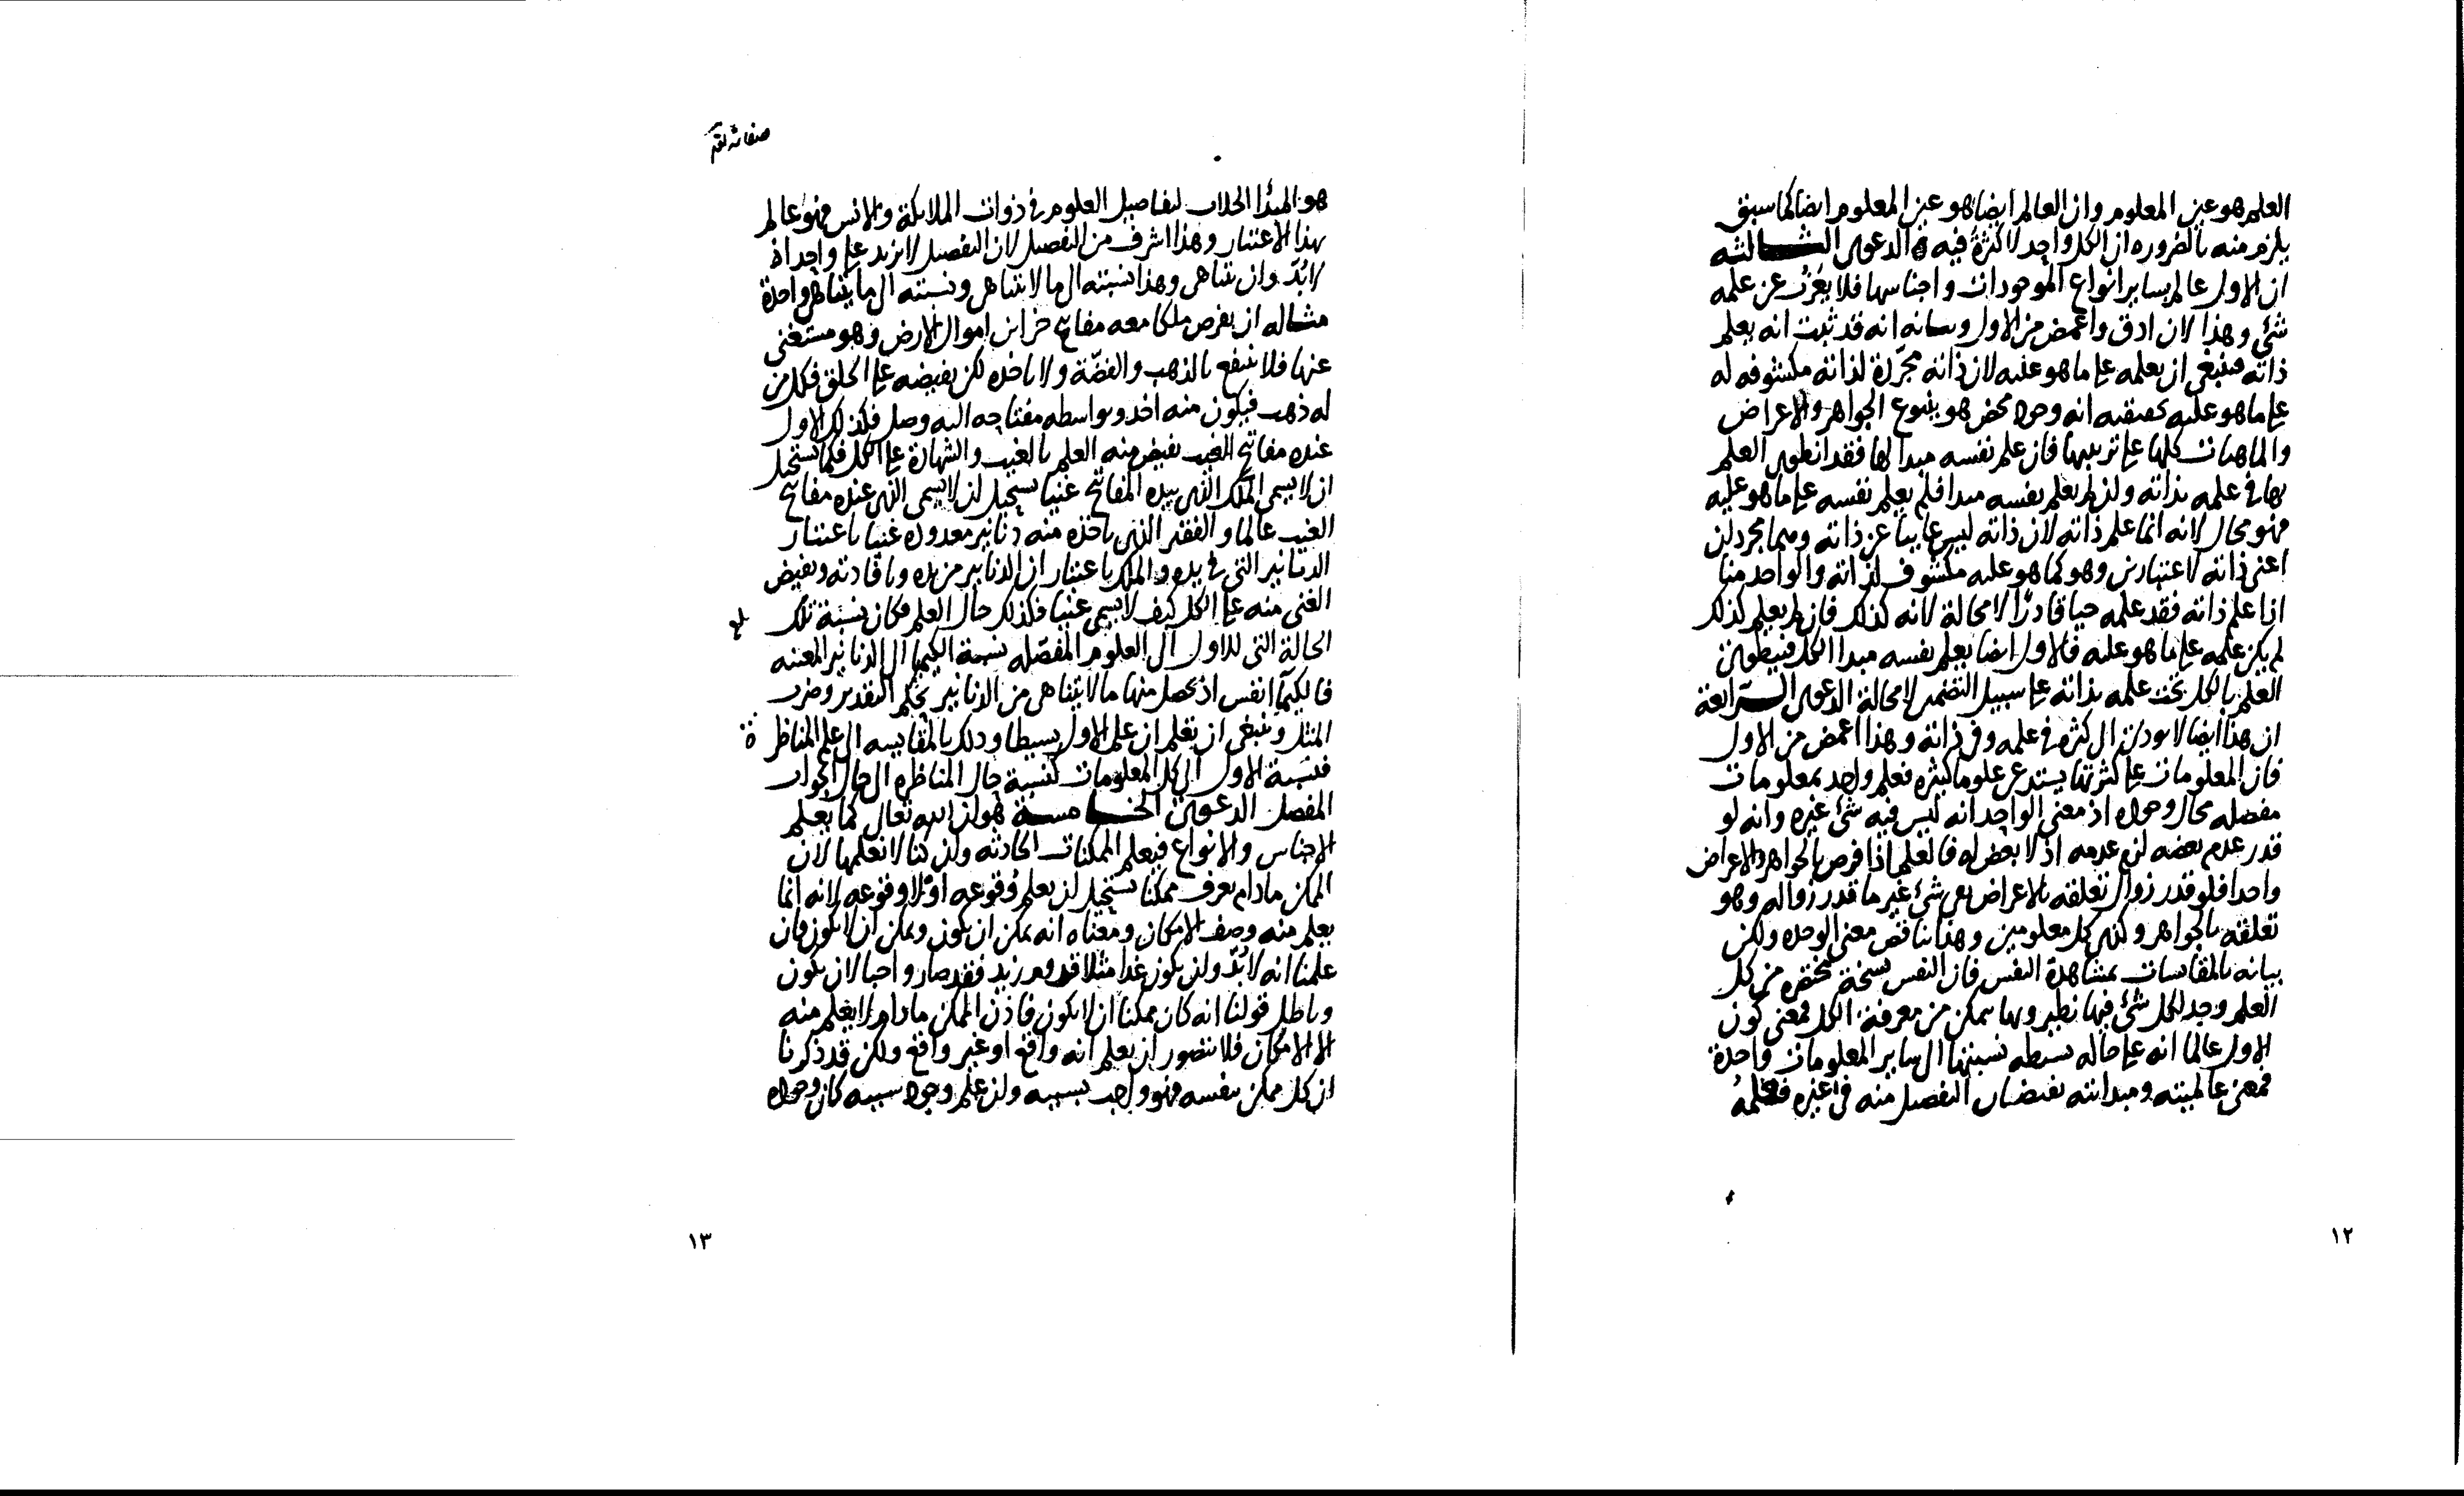 العلم هو عين المعلوم وان العالم ايضا هو عين المعلوم ايضا كما سبق
يلزم منه بالضروره ان الكل واحد لا كثرة فيه ه الدعوى الثالثه
ان الاول عالم بساير انواع الموجودات واجناسها فلا يعزب عن علمه
شئ وهذا لان ادق واغمض من الاول وبيانه انه قد ثبت انه يعلم
ذاته فينبغى ان يعلمه على ما هو عليه لان ذاته مجردة لذاته مكشوفه له
على ما هو عليه بحقيقته انه وجود محض هو ينبوع الجواهر والاعراض
والماهيات كلها على ترتيبها فان علم نفسه مبدا لها فقد انطوى العلم
بها فى علمه بذاته وان لم يعلم نفسه مبدا فلم يعلم نفسه على ما هو عليه
فهو محال لانه انما علم ذاته لان ذاته ليس غايبا عن ذاته وهما مجردان
اعنى ذاته لاعتبارين وهو كما هو عليه مكشوف لذاته والواحد منا
اذا علم ذاته فقد علمه حيا قادرا لا محالة لانه كذلك فان لم يعلم كذلك
لم يكن علمه على ما هو عليه فالاول ايضا يعلم نفسه مبدا الكل فينطوى
العلم بالكل تحت علمه بذاته على سبيل التضمن لا محالة الدعوى الرابعة
ان هذا ايضا لا يودى الى كثره فى علمه وفى ذاته وهذا اغمض من الاول
فان المعلومات على كثرتها يستدعى علوما كثيره فعلم واحد بمعلومات
مفصله محال وجوده اذ معنى الواحد انه ليس فيه شئ غيره وانه لو
قدر عدم بعضه لزم عدمه اذ لا بعض له فالعلم اذا فرض بالجواهر والاعراض
واحدا فلو قدر زوال تعلقه بالاعراض بقى شئ غير ما قدر زواله وهو
تعلقه بالجواهر وكذى كل معلومين وهذا يناقض معنى الوحده ولكن
بيانه بالمقايسات بمشاهدة النفس فان النفس نسخة مختصره من كل
العلم وجد لكل شئ فيها نظير وبها يتمكن من معرفة الكل فمعنى كون
الاول عالما انه على حاله بسيطه نسبتها الى ساير المعلومات واحدة
فمعنى عالميته ومبدائته لفيضان التفصيل منه فى غيره فعلمه
١٢
هو المبدأ الخلاق لتفاصيل العلوم فى ذوات الملائكة والانس فهو عالم
بهذا الاعتبار وهذا اشرف من التفصيل لان التفصيل لا يزيد على واحد اذ
لا بد وان يتناهى وهذا نسبته الى ما لا يتناهى ونسبته الى ما يتناهى واحدة
مثاله ان يفرض ملكا معه مفاتيح خزاين اموال الارض وهو مستغنى
عنها فلا ينتفع بالذهب والفضة ولا ياخذه لكن يفيضه على الخلق فكل من
له ذهب فيكون منه اخذ وبواسطه مفتاحه اليه وصل فكذلك الاول
عنده مفاتيح الغيب يفيض منه العلم بالغيب والشهادة على الكل فكما يستحيل
ان لا يسمى الملك الذى بيده المفاتيح غنيا يستحيل ان لا يسمى الذى عنده مفاتيح
الغيب عالما والفقير الذى ياخذ منه دنانير معدوده غنيا باعتبار
الدنانير التى فى يده والملك باعتبار ان الدنانير من يده وبافادته ويفيض
الغنى منه على الكل كيف لا يسمى غنيا فكذلك حال العلم فكان نسبة تلك
الحالة التى للاول الى العلوم المفصله نسبة الكيميا الى الدنانير المعينه
فالكيميا انفس اذ يحصل منها ما لا يتناهى من الدنانير بحكم التقدير وضرب
المثل وينبغى ان تعلم ان علم الاول بسيطا وذلك بالمقايسه الى علم المناظر
فنسبة الاول الى كل المعلومات كنسبة حال المناظره الى حال الجواب
المفصل الدعوى الخامسة هو ان الله تعالى كما يعلم
الاجناس والانواع فيعلم الممكنات الحادثه وان كنا لا نعلمها لان
الممكن ما دام يعرف ممكنا يستحيل ان يعلم وقوعه او لا وقوعه لانه انما
يعلم منه وصف الامكان ومعناه انه يمكن ان يكون ويمكن ان لا يكون فان
علمنا انه لا بد وان يكون غدا مثلا قدوم زيد فقد صار واجبا لان يكون
وباطل قولنا انه كان ممكنا ان لا يكون فاذن الممكن ما دام لا يعلم منه
الا الامكان فلا يتصور ان يعلم انه واقع او غير واقع ولكن قد ذكرنا
ان كل ممكن بنفسه فهو واجب بسببه وان علم وجود سببه كان وجوده
١٣